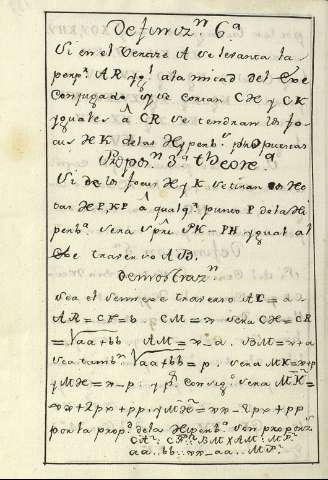 Definiz.n 6.a
Si en el Vertize A se levanta la
perp.r AR yg.l a la mitad del Exe
Conjugado y se Cortan CH y CK
yguales â CR se tendran los fo=
cus H K de las Hyperb.s opuestas
Propos.n 3.a theore.a
Si de los focus H y K se tiran las Rec
tas HP, KP â qualq.r punto P de la Hi
perb.a sera spre PK - PH ygual al
Exe traverso AB.
Demostraz.n
Sea el semiexe traverso AC = a
AR = CF = b CM = x sera CH = CR
= √aa+bb AM = x-a. BM = x+a
Sea tamb.n √aa+bb = p. sera MK = x+p
y MH = x-p. y p.r Consig.e sera MK² =
xx+2px+pp. y MH² = xx-2px+pp
por la prop.d de la Hiperb.a son proporz.s
CA². CF².: BM x AM. MP²
aa..bb.: xx-aa.. MP²